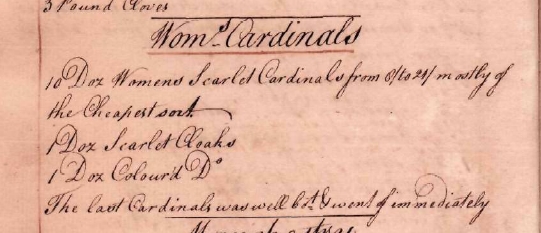 3 Pound Cloves
Wom.s Cardinals
10 Doz Womens Scarlet Cardinals from 8/ to 21/ mostly of
the Cheapest sort
1 Doz Scarlet Cloaks
1 Doz Colour'd Do
The last Cardinals was well bot. & went of immediately